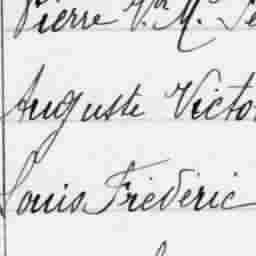 Pierre V.or M.
Auguste Victo
Louis Fréderic